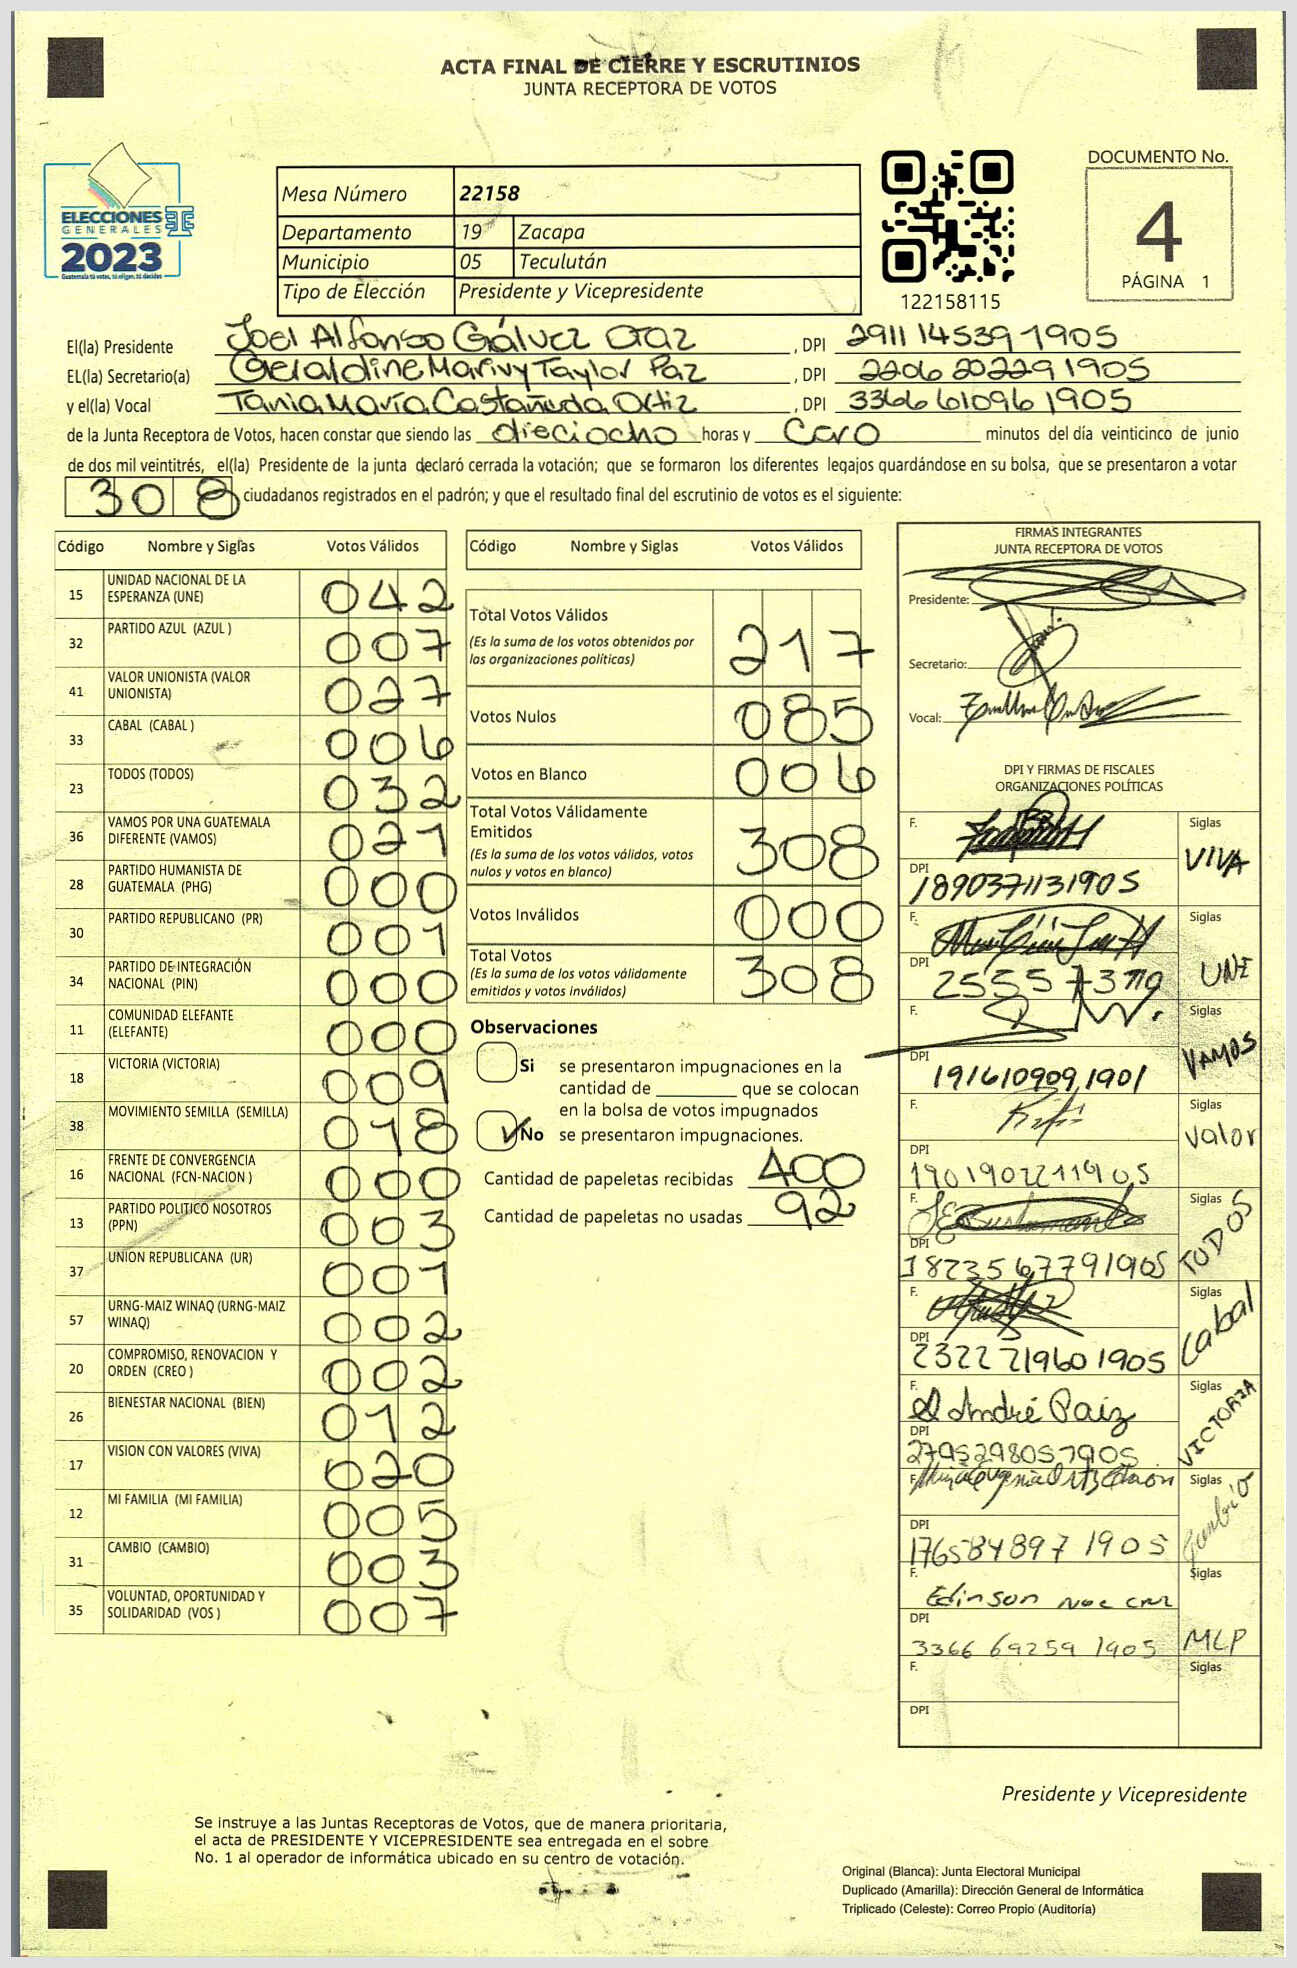 ACTA FINAL DE CIERRE Y ESCRUTINIOS
JUNTA RECEPTORA DE VOTOS
ELECCIONES
GENERALES
2023
Guatemala tú votas, tú eliges, tú decides
Mesa Número 22158
Departamento 19 Zacapa
Municipio 05 Teculután
Tipo de Elección Presidente y Vicepresidente
122158115
DOCUMENTO No.
4
PÁGINA 1
El(la) Presidente Joel Alfonso Gálvez Diaz, DPI 2911 14539 1905
EL(la) Secretario(a) Geraldine Marivy Taylor Paz, DPI 2206 20229 1905
y el(la) Vocal Tania María Castañeda Ortiz, DPI 3366 61096 1905
de la Junta Receptora de Votos, hacen constar que siendo las dieciocho horas y cero minutos del día veinticinco de junio
de dos mil veintitrés, el(la) Presidente de la junta declaró cerrada la votación; que se formaron los diferentes legajos quardándose en su bolsa, que se presentaron a votar
308 ciudadanos registrados en el padrón; y que el resultado final del escrutinio de votos es el siguiente:
Código Nombre y Siglas Votos Válidos
15 UNIDAD NACIONAL DE LA ESPERANZA (UNE) 042
32 PARTIDO AZUL (AZUL ) 007
41 VALOR UNIONISTA (VALOR UNIONISTA) 027
33 CABAL (CABAL ) 006
23 TODOS (TODOS) 032
36 VAMOS POR UNA GUATEMALA DIFERENTE (VAMOS) 021
28 PARTIDO HUMANISTA DE GUATEMALA (PHG) 000
30 PARTIDO REPUBLICANO (PR) 001
34 PARTIDO DE INTEGRACIÓN NACIONAL (PIN) 000
11 COMUNIDAD ELEFANTE (ELEFANTE) 000
18 VICTORIA (VICTORIA) 009
38 MOVIMIENTO SEMILLA (SEMILLA) 018
16 FRENTE DE CONVERGENCIA NACIONAL (FCN-NACION ) 000
13 PARTIDO POLITICO NOSOTROS (PPN) 003
37 UNION REPUBLICANA (UR) 001
57 URNG-MAIZ WINAQ (URNG-MAIZ WINAQ) 002
20 COMPROMISO, RENOVACION Y ORDEN (CREO ) 002
26 BIENESTAR NACIONAL (BIEN) 012
17 VISION CON VALORES (VIVA) 020
12 MI FAMILIA (MI FAMILIA) 005
31 CAMBIO (CAMBIO) 003
35 VOLUNTAD, OPORTUNIDAD Y SOLIDARIDAD (VOS ) 007
Código Nombre y Siglas Votos Válidos
Total Votos Válidos 217
(Es la suma de los votos obtenidos por
las organizaciones políticas)
Votos Nulos 085
Votos en Blanco 006
Total Votos Válidamente
Emitidos 308
(Es la suma de los votos válidos, votos
nulos y votos en blanco)
Votos Inválidos 000
Total Votos 308
(Es la suma de los votos válidamente
emitidos y votos inválidos)
Observaciones
Si se presentaron impugnaciones en la
cantidad de ________ que se colocan
en la bolsa de votos impugnados
No se presentaron impugnaciones.
Cantidad de papeletas recibidas 400
Cantidad de papeletas no usadas 92
FIRMAS INTEGRANTES
JUNTA RECEPTORA DE VOTOS
Presidente:
Secretario:
Vocal:
DPI Y FIRMAS DE FISCALES
ORGANIZACIONES POLÍTICAS
F. Siglas VIVA
DPI 1890371131905
F. Siglas UNE
DPI
F. Siglas VAMOS
DPI 1916109091901
F. Siglas Valor
DPI 1901902211905
F. Siglas TODOS
DPI 1823567791905
F. Siglas Cabal
DPI 2322719601905
F. André Paiz Siglas VICTORIA
DPI 2795298051905
F. Siglas Cambio
DPI 176584897 1905
F. Edinson Noe Cruz Siglas MLP
DPI 3366 69259 1905
F. Siglas
DPI
Presidente y Vicepresidente
Se instruye a las Juntas Receptoras de Votos, que de manera prioritaria,
el acta de PRESIDENTE Y VICEPRESIDENTE sea entregada en el sobre
No. 1 al operador de informática ubicado en su centro de votación.
Original (Blanca): Junta Electoral Municipal
Duplicado (Amarilla): Dirección General de Informática
Triplicado (Celeste): Correo Propio (Auditoría)